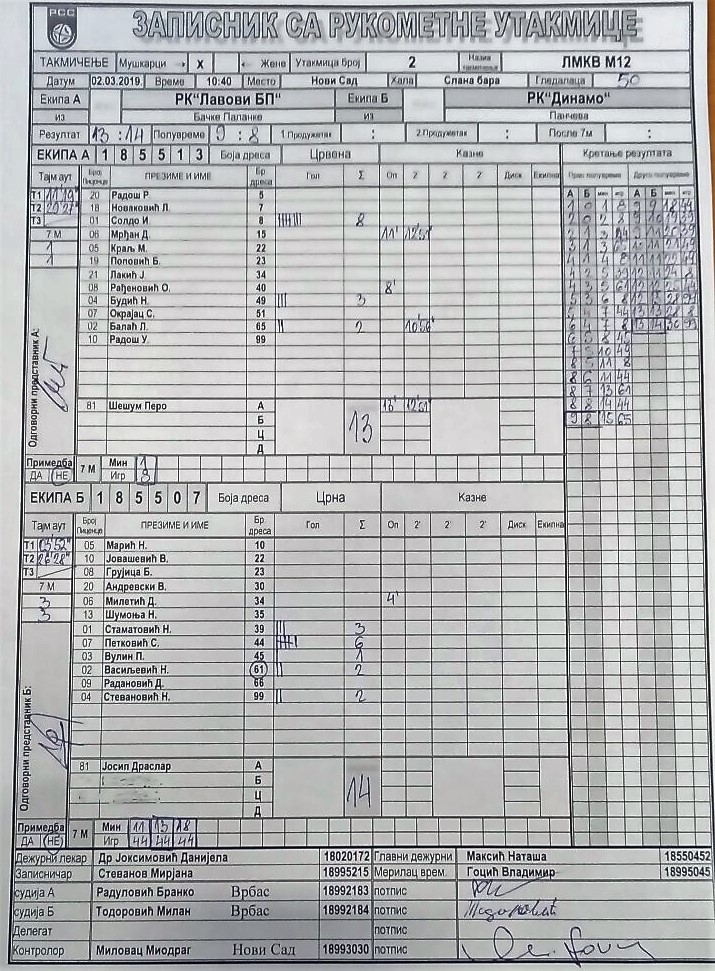 РСС
ЗАПИСНИК СА РУКОМЕТНЕ УТАКМИЦЕ
ТАКМИЧЕЊЕ Мушкарци → X ← Жене Утакмица број 2 Назив такмичења ЛМКВ М12
Датум 02.03.2019. Време 10:40 Место Нови Сад Хала Слана бара Гледалаца 50
Екипа А РК"Лавови БП" Екипа Б РК"Динамо"
из Бачке Паланке из Панчева
Резултат 13 : 14 Полувреме 9 : 8 1.Продужетак : 2.Продужетак : После 7м :
ЕКИПА А 1 8 5 5 1 3 Боја дреса Црвена Казне Кретање резултата
Тајм аут Број Лиценце ПРЕЗИМЕ И ИМЕ Бр дреса Гол Σ Оп 2' 2' 2' Диск Екипна
А Б мин игр А Б мин игр
Т1 11'19"
Т2 29'27"
Т3
7 М
1
1
20 Радош Р. 5
18 Новаковић Л. 7
01 Солдо И. 8 8
06 Мрђан Д. 15 11' 12'51"
05 Краљ М. 22
19 Поповић Б. 23
21 Лакић Ј. 34
08 Рађеновић О. 40 8'
04 Будић Н. 49 ||| 3
07 Окрајац С. 51
02 Балаћ Л. 65 || 2 10'56"
10 Радош У. 99
1 0 1 8
2 0 2 8
3 1 3 65
4 1 4 8
4 2 5 39
4 3 5 61
5 3 6 8
5 4 7 44
6 4 7 8
6 5 8 45
7 5 10 49
8 5 11 8
8 6 11 44
8 7 13 61
8 8 14 44
9 8 15 65
13 13 28 8
13 14 30 99
Одговорни представник А:
81 Шешум Перо А 13' 12'51"
Б
Ц
Д
13
Примедба ДА НЕ 7 М Мин 1
Игр 8
ЕКИПА Б 1 8 5 5 0 7 Боја дреса Црна Казне
Тајм аут Број Лиценце ПРЕЗИМЕ И ИМЕ Бр дреса Гол Σ Оп 2' 2' 2' Диск Екипна
Т1 13'52"
Т2 26'28"
Т3
7 М
3
3
05 Марић Н. 10
10 Јовашевић В. 22
08 Грујица Б. 23
20 Андревски В. 30
06 Милетић Д. 34 4'
13 Шумоња Н. 35
01 Стаматовић Н. 39 ||| 3
07 Петковић С. 44 6
03 Вулин П. 45 | 1
02 Васиљевић Н. 61 || 2
09 Радановић Д. 66
04 Стевановић Н. 99 || 2
Одговорни представник Б:
81 Јосип Драслар А
Б
Ц
Д
14
Примедба ДА НЕ 7 М Мин 11 13 18
Игр 44 44 44
Дежурни лекар Др Јоксимовић Данијела 18020172 Главни дежурни Максић Наташа 18550452
Записничар Стеванов Мирјана 18995215 Мерилац врем. Гоцић Владимир 18995045
судија А Радуловић Бранко Врбас 18992183 потпис
судија Б Тодоровић Милан Врбас 18992184 потпис
Делегат потпис
Контролор Миловац Миодраг Нови Сад 18993030 потпис